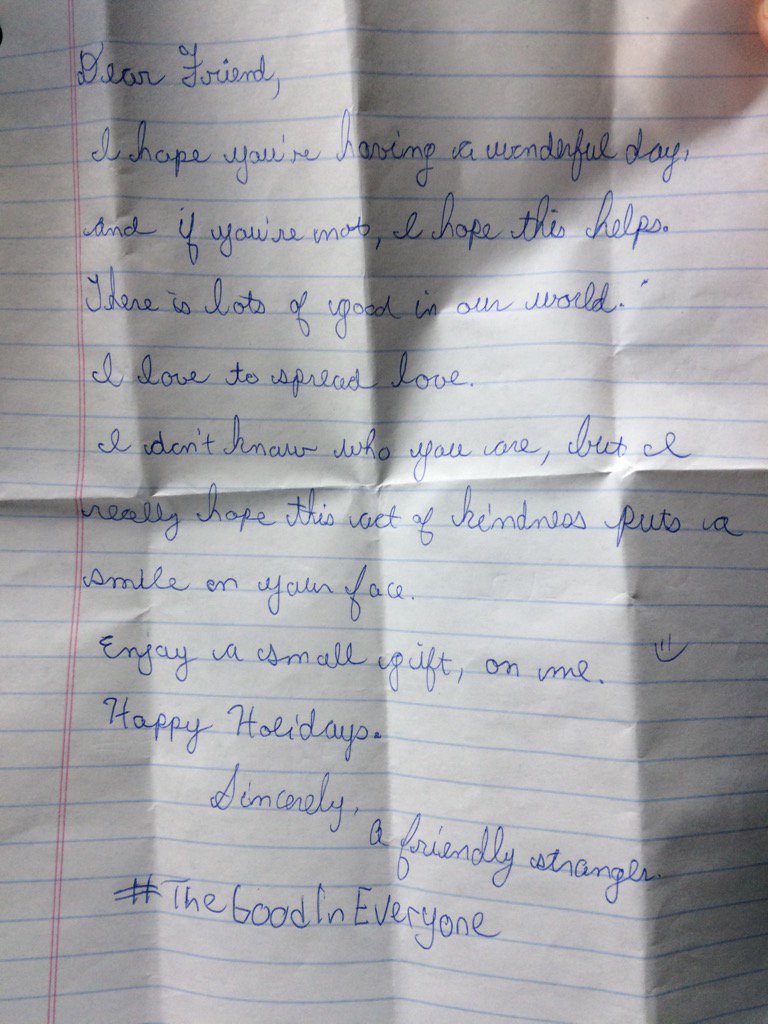 Dear Friend,
I hope you're having a wonderful day,
and if you're not, I hope this helps.
There is lots of good in our world.
I love to spread love.
I don't know who you are, but I
really hope this act of kindness puts a
smile on your face.
Enjay a small gift, on me. :)
Happy Holidays.
Sincerely,
a friendly stranger.
#TheGoodInEveryone